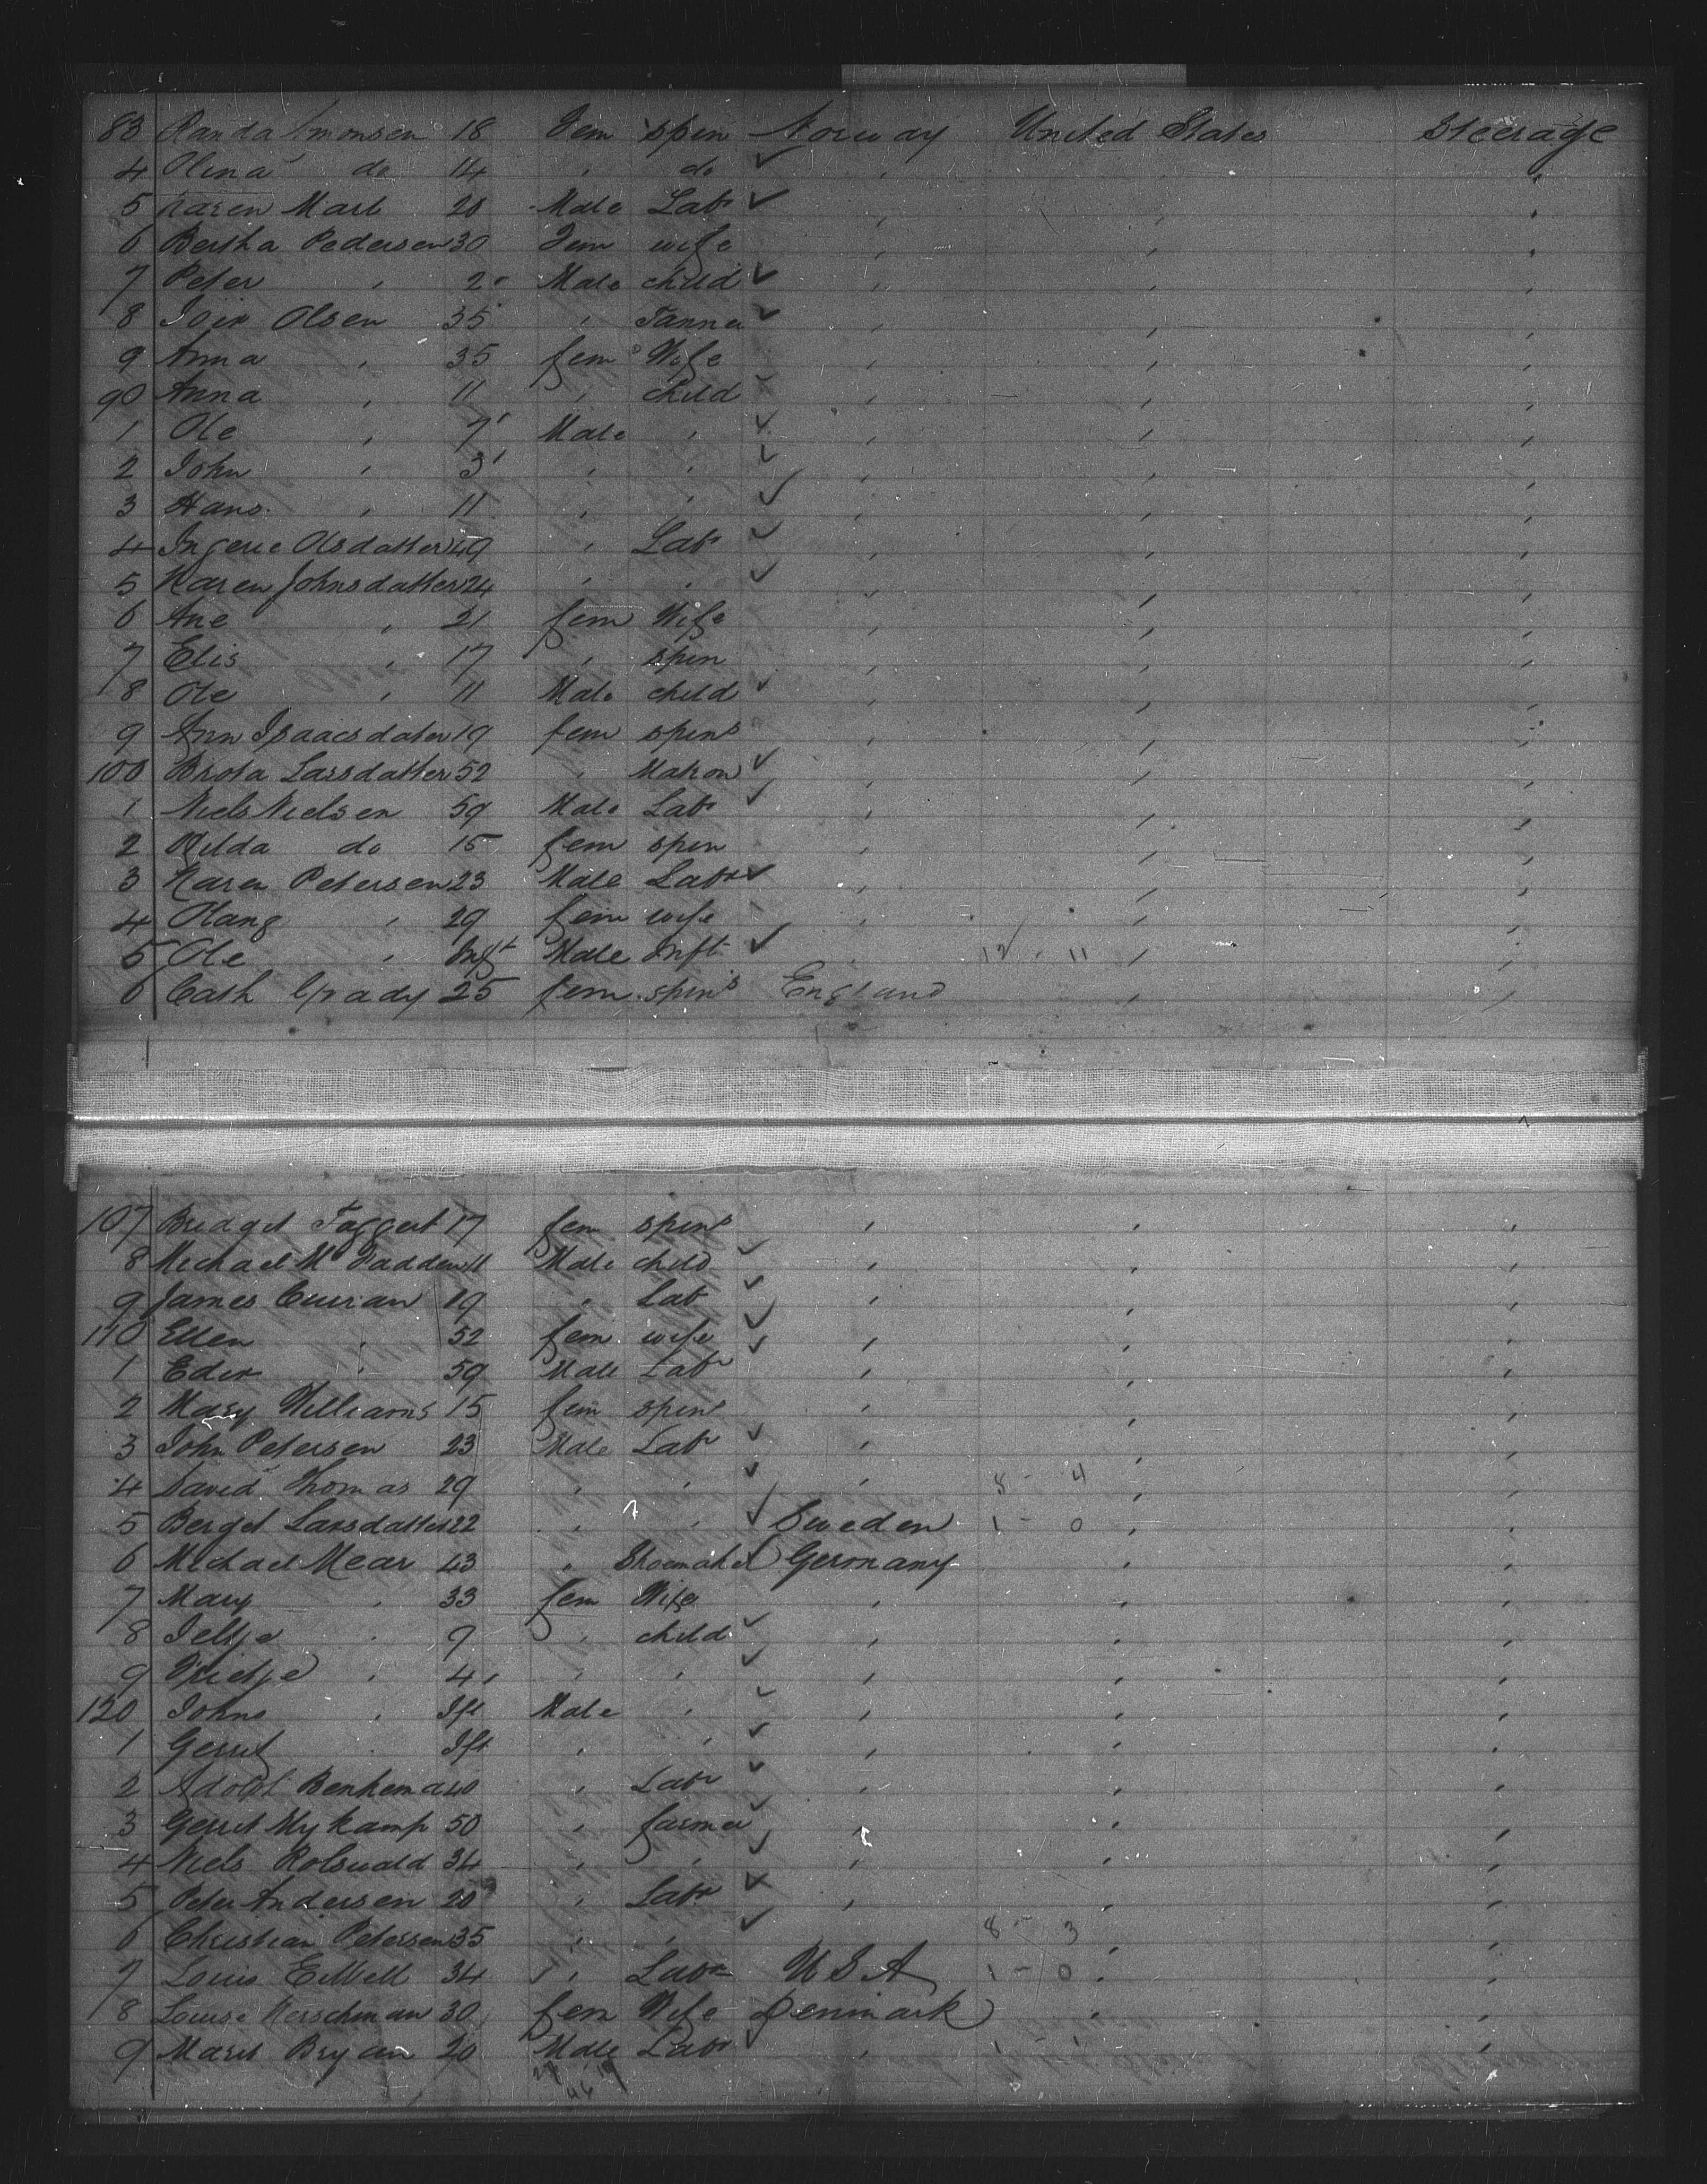 83 Randa Amonsen 18 Fem spin Norway United States Steerage
4 Olena do 14 " do " " "
5 Karen Marl 20 Male Labr " " "
6 Bertha Pedersen 30 Fem wife " " "
7 Peter " 2 Male child " " "
8 Olsen 35 " Tanner " " "
9 Anna " 35 fem Wife " " "
90 Anna " 11 " child " " "
1 Ole " 7 Male " " " "
2 John " 3 " " " " "
3 Hans " 11 " " " " "
4 Ingerie Olsdatter 49 " Labr " " "
5 Karen Johnsdatter 24 " " " " "
6 Ane " 21 fem Wife " " "
7 Elis " 17 " spin " " "
8 Ole " 11 Male child " " "
9 Ann Isaacsdater 19 fem spins " " "
100 Brota Larsdatter 52 " Matron " " "
1 Niels Nielsen 59 Male Labr " " "
2 Hilda do 15 fem spin " " "
3 Karen Petersen 23 Male Labr " " "
4 Olang " 29 fem wife " " "
5 Ole " Inft Male Inft " 12 - 11 " "
6 Cath Grady 25 fem spins England " "
107 Bridget Taggert 17 fem spins " " "
8 Michael McFadden 11 Male child " " "
9 James Curran 19 " Labr " " "
110 Ellen " 52 fem wife " " "
1 Eder " 59 Male Labr " " "
2 Mary Williams 15 fem spins " " "
3 John Petersen 23 Male Labr " " "
4 David Thomas 29 " " " 8 - 4 " "
5 Berget Larsdatter 22 " " Sweden 1 - 0 " "
6 Michael Mear 43 " Shoemaker Germany " "
7 Mary " 33 fem Wife " " "
8 Jeltje " 9 " child " " "
9 " 4 " " " " "
120 Johns " Ift Male " " " "
1 Gerrit " Ift " " " " "
2 Adolf Benhema 40 " Labr " " "
3 Gerrit Mykamp 50 " farmer " " "
4 Niels Rolswald 34 " " " " "
5 Peter Andersen 20 " Labr " " "
6 Christian Petersen 35 " " 8 - 3 " "
7 Louis 34 " Labr U S A 1 - 0 "
8 Louise Herschman 30 fem Wife Denmark " "
9 Maris Bryan 20 Male Labr " 1 - 1 " "
27 19
46